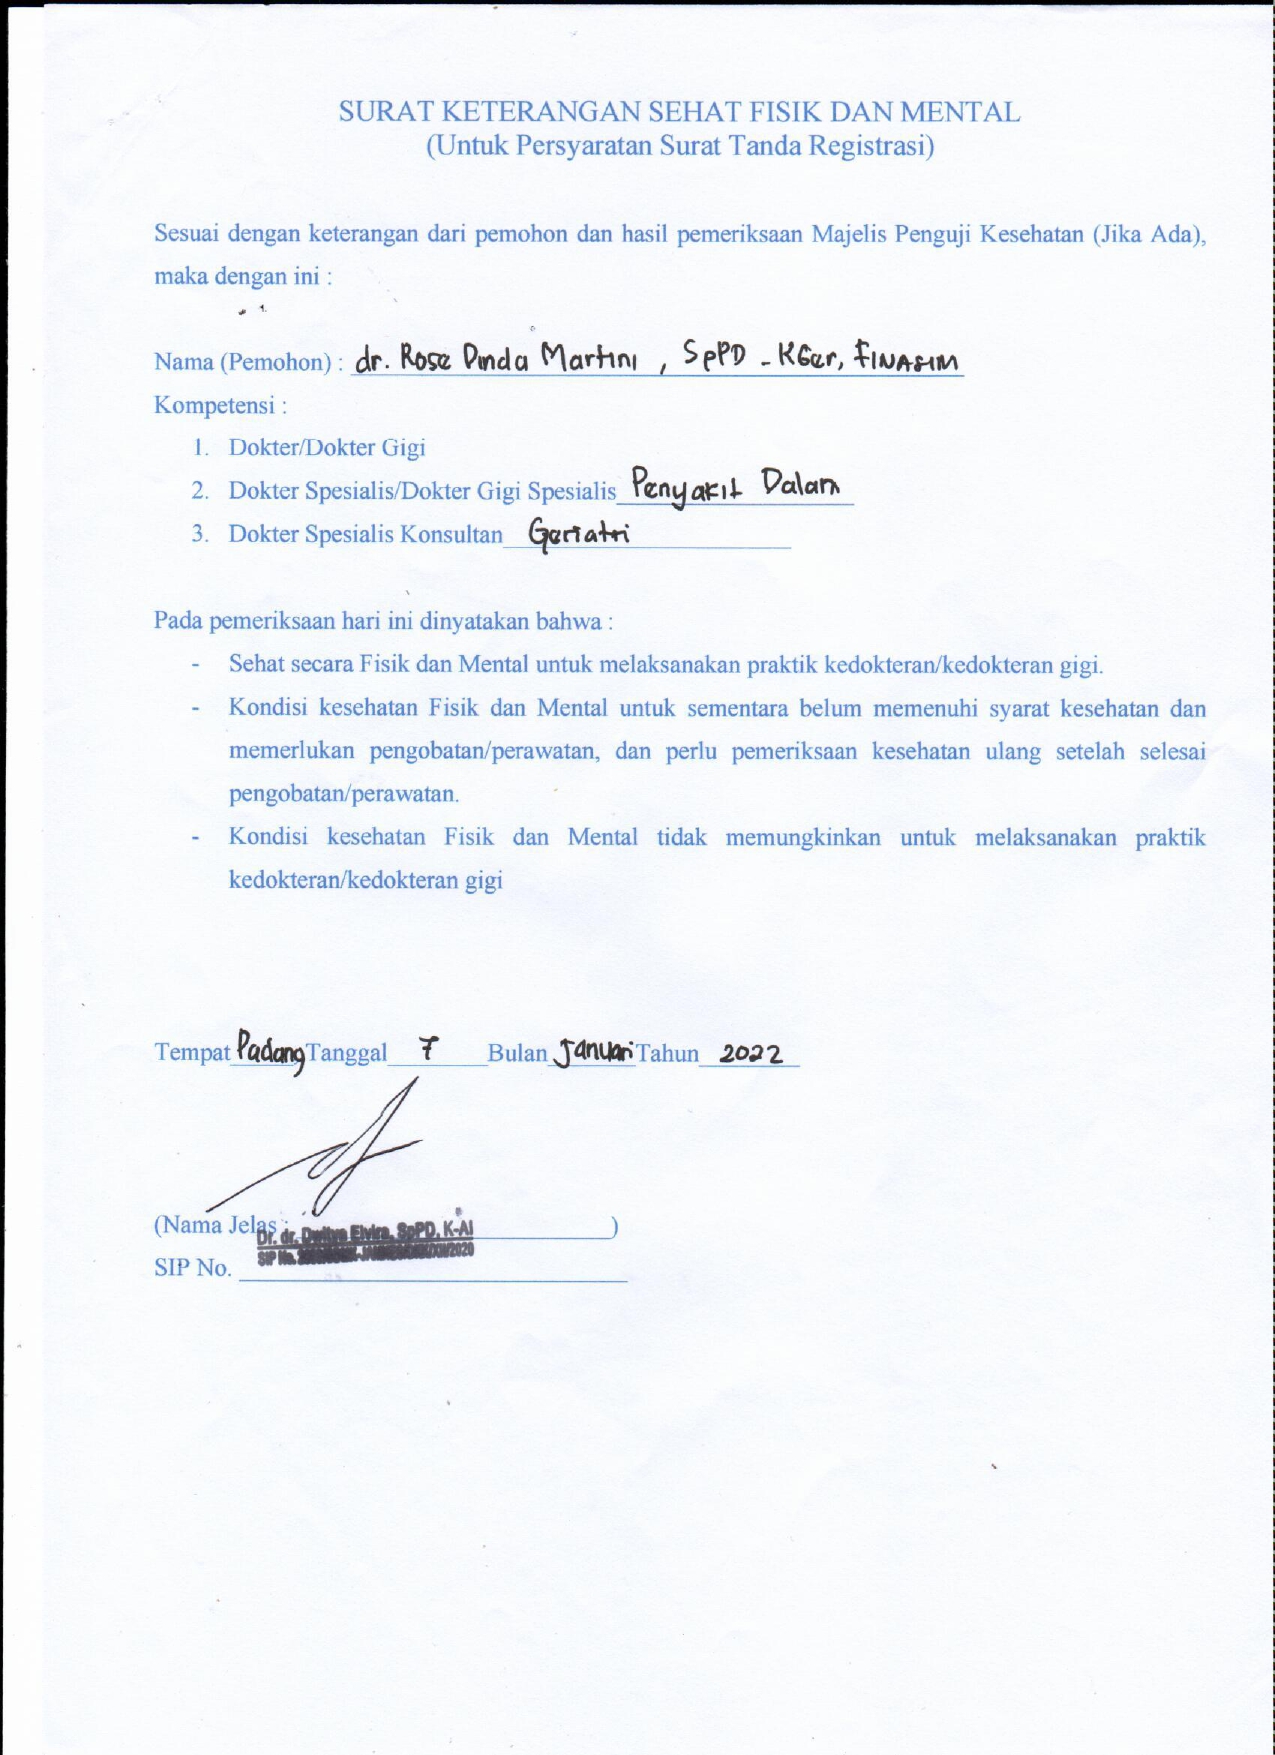 SURAT KETERANGAN SEHAT FISIK DAN MENTAL
(Untuk Persyaratan Surat Tanda Registrasi)
Sesuai dengan keterangan dari pemohon dan hasil pemeriksaan Majelis Penguji Kesehatan (Jika Ada),
maka dengan ini :
Nama (Pemohon) : dr. Rose Dinda Martini , SpPD - KGer, FINASIM
Kompetensi :
1. Dokter/Dokter Gigi
2. Dokter Spesialis/Dokter Gigi Spesialis Penyakit Dalam
3. Dokter Spesialis Konsultan Geriatri
Pada pemeriksaan hari ini dinyatakan bahwa :
- Sehat secara Fisik dan Mental untuk melaksanakan praktik kedokteran/kedokteran gigi.
- Kondisi kesehatan Fisik dan Mental untuk sementara belum memenuhi syarat kesehatan dan
memerlukan pengobatan/perawatan, dan perlu pemeriksaan kesehatan ulang setelah selesai
pengobatan/perawatan.
- Kondisi kesehatan Fisik dan Mental tidak memungkinkan untuk melaksanakan praktik
kedokteran/kedokteran gigi
Tempat Padang Tanggal 7 Bulan Januari Tahun 2022
(Nama Jelas : Dr. dr. Dwitya Elvira, SpPD, K-AI )
SIP No.
SIP No.